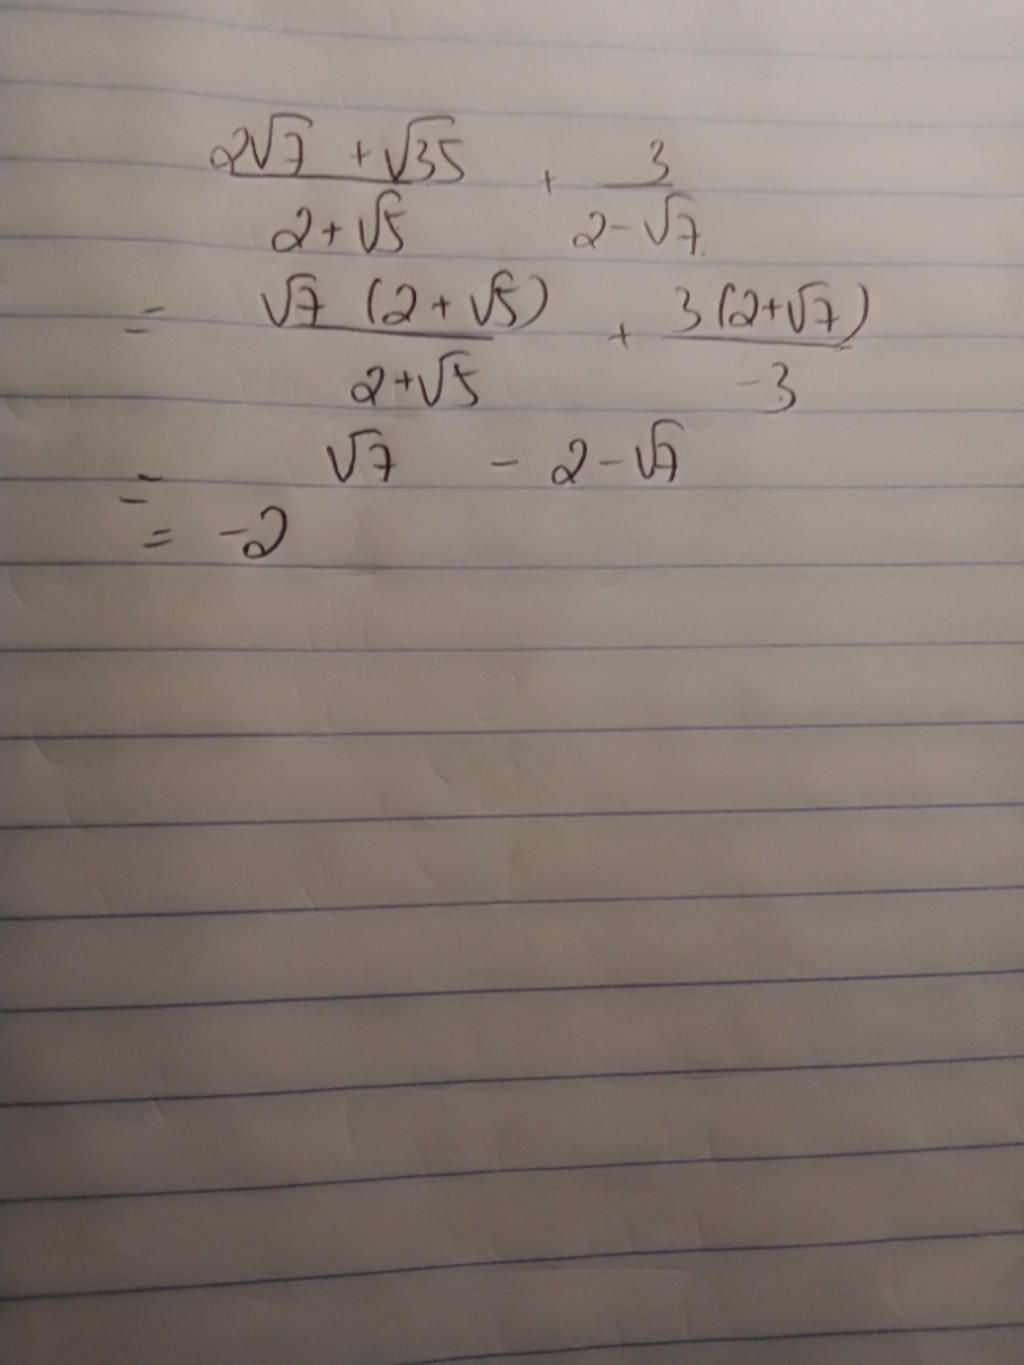 2√7 + √35 / 2+√5 + 3 / 2-√7.
= √7 (2+√5) / 2+√5 + 3(2+√7) / -3
= √7 - 2-√7
= -2